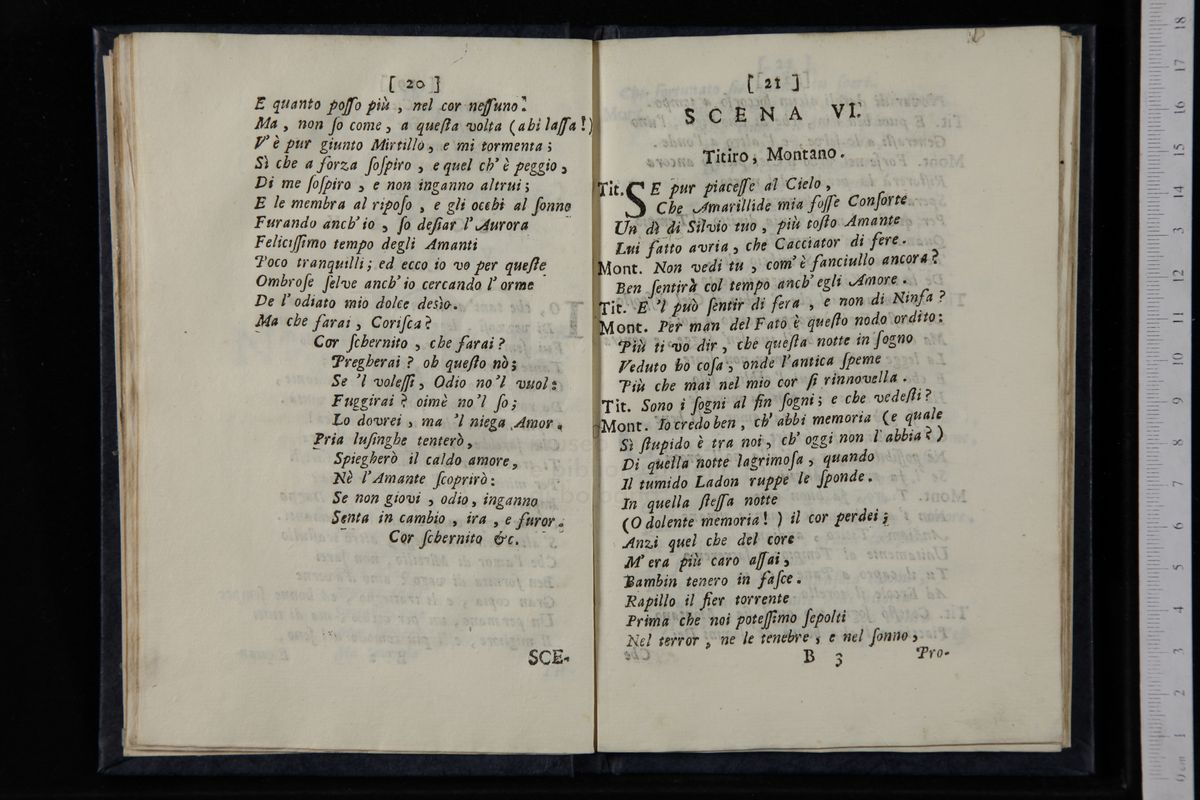 [ 20 ]
E quanto poſſo più , nel cor neſſuno!
Ma , non ſo come , a queſta volta (ahi laſſa !)
V' è pur giunto Mirtillo , e mi tormenta ;
Sì che a forza ſoſpiro , e quel ch' è peggio ,
Di me ſoſpiro , e non inganno altrui ;
E le membra al ripoſo , e gli occhi al ſonno
Furando anch' io , ſo deſiar l' Aurora
Feliciſſimo tempo degli Amanti
Poco tranquilli ; ed ecco io vo per queſte
Ombroſe ſelve anch' io cercando l' orme
De l' odiato mio dolce desìo.
Ma che farai , Coriſca ?
Cor ſchernito , che farai ?
Pregherai ? oh queſto nò ;
Se 'l voleſſi , Odio no 'l vuol :
Fuggirai ? oimè no 'l ſo ;
Lo dovrei , ma 'l niega Amor .
Pria luſinghe tenterò ,
Spiegherò il caldo amore ,
Nè l' Amante ſcoprirò :
Se non giovi , odio , inganno
Senta in cambio , ira , e furor .
Cor ſchernito &c.
SCE-
[ 21 ]
SCENA VI.
Titiro , Montano .
Tit. SE pur piaceſſe al Cielo ,
Che Amarillide mia foſſe Conſorte
Un dì di Silvio tuo , più toſto Amante
Lui fatto avria , che Cacciator di fere .
Mont. Non vedi tu , com' è fanciullo ancora ?
Ben ſentirà col tempo anch' egli Amore .
Tit. E 'l può ſentir di fera , e non di Ninfa ?
Mont. Per man del Fato è queſto nodo ordito :
Più ti vo dir , che queſta notte in ſogno
Veduto ho coſa , onde l'antica ſpeme
Più che mai nel mio cor ſi rinnovella .
Tit. Sono i ſogni al fin ſogni ; e che vedeſti ?
Mont. Io credo ben , ch' abbi memoria (e quale
Sì ſtupido è tra noi , ch' oggi non l' abbia ? )
Di quella notte lagrimoſa , quando
Il tumido Ladon ruppe le ſponde .
In quella ſteſſa notte
(O dolente memoria ! ) il cor perdei ;
Anzi quel che del core
M' era più caro aſſai ,
Bambin tenero in faſce .
Rapillo il fier torrente
Prima che noi poteſſimo ſepolti
Nel terror , ne le tenebre , e nel ſonno ,
B 3 Pro-